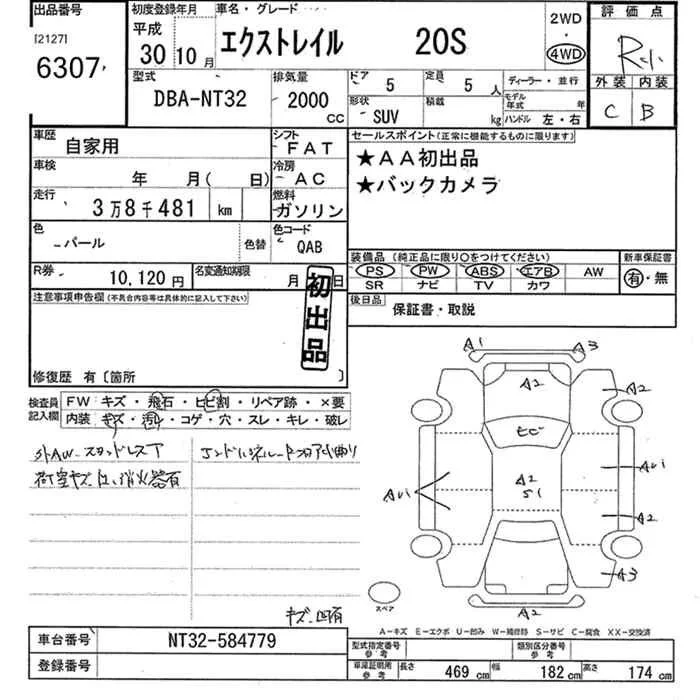 出品番号
[2127]
6307
初度登録年月
平成
30年 10月
車名・グレード
エクストレイル 20S
2WD
・
4WD
評価点
R
外装 内装
C B
型式
DBA-NT32
排気量
2000
CC
ドア
5
定員
5 人
形状
SUV
積載
kg
ディーラー・並行
モデル
年式 年
ハンドル 左・右
車歴
自家用
シフト
FAT
車検
年 月( 日)
冷房
AC
走行
3万8千481 km
燃料
ガソリン
色
パール
色替
色コード
QAB
R券
10,120 円
名変通知期限
月 日
セールスポイント(正常に機能するものに限ります)
★AA初出品
★バックカメラ
装備品(純正品に限り○をつけてください)
PS PW ABS エアB AW
SR ナビ TV カワ
新車保証書
有・無
後日品
保証書・取説
注意事項申告欄(不具合内容等は具体的に記入して下さい)
初出品
修復歴 有〔箇所 〕
検査員
記入欄
FW キズ・飛石・ヒビ割・リペア跡・×要
内装 キズ・汚れ・コゲ・穴・スレ・キレ・破レ
外AW.スタッドレス下
荷室キズ
消火器有
キズ.凹有
A1 A3
A2 A2
ヒビ
A2
S1
AU1 AU1
A2
A3
A2
スペア
A-キズ E-エクボ U-凹み W-補修跡 S-サビ C-腐食 XX-交換済
車台番号
NT32-584779
登録番号
型式指定番号
参考
類別区分番号
参考
車庫証明所
参考
長さ 469 cm 幅 182 cm 高さ 174 cm